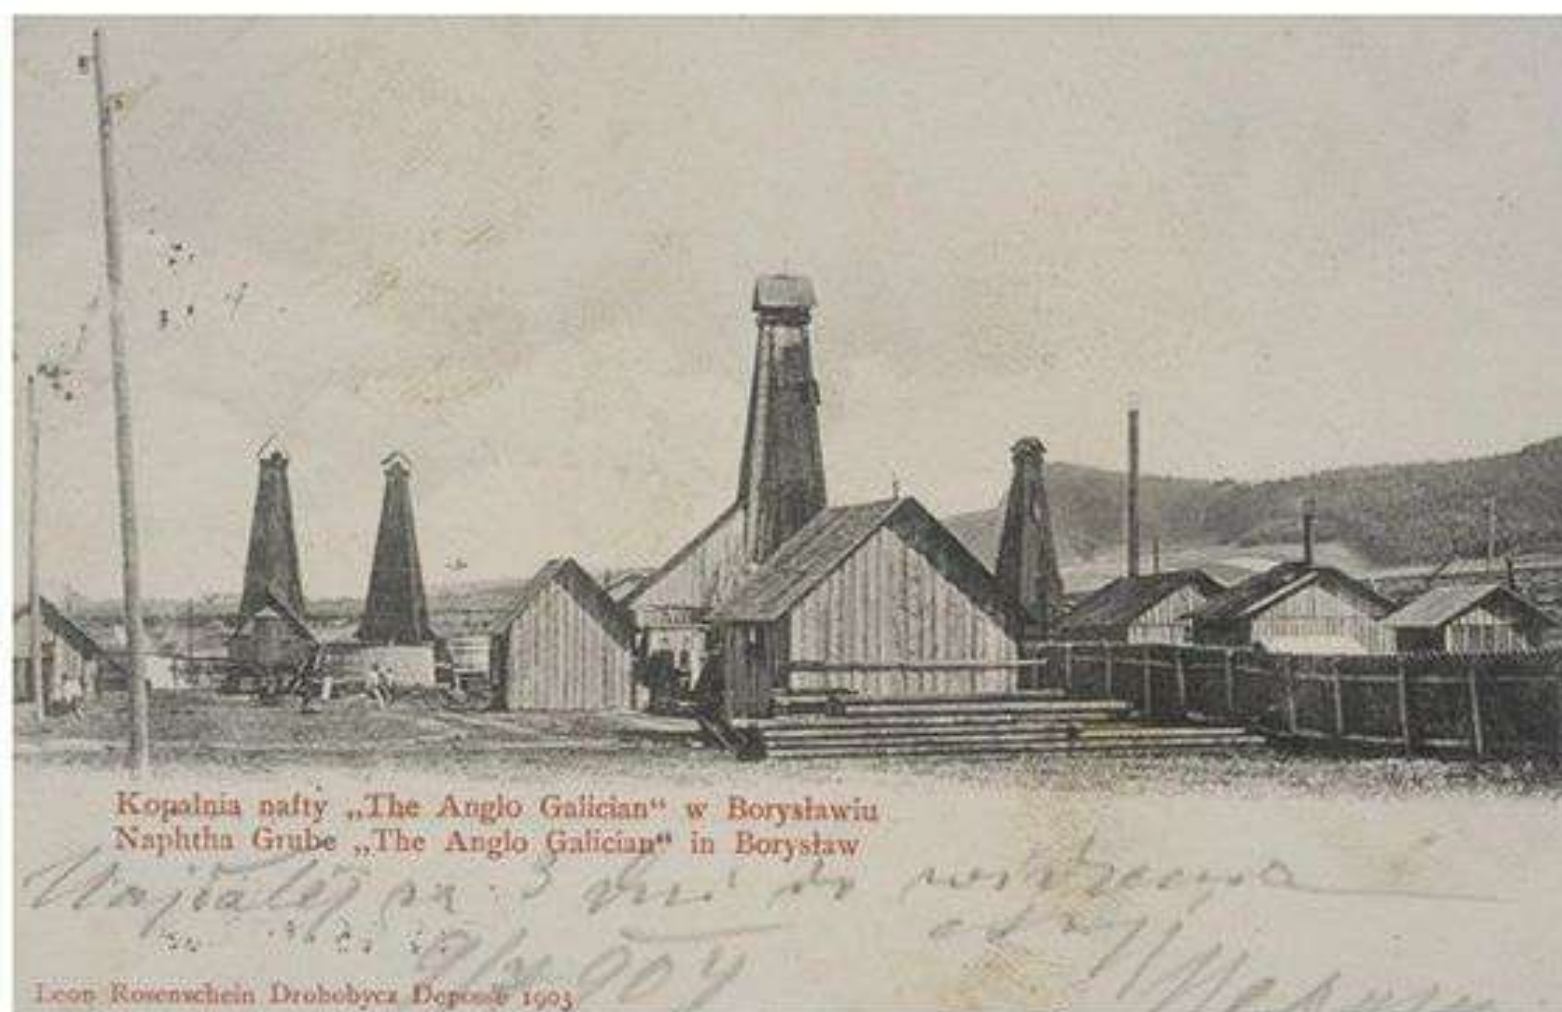 Kopalnia nafty „The Anglo Galician“ w Borysławiu
Naphtha Grube „The Anglo Galician“ in Borysław
za 3 dni do widzenia
Leon Rosenschein Drohobycz Deposé 1903